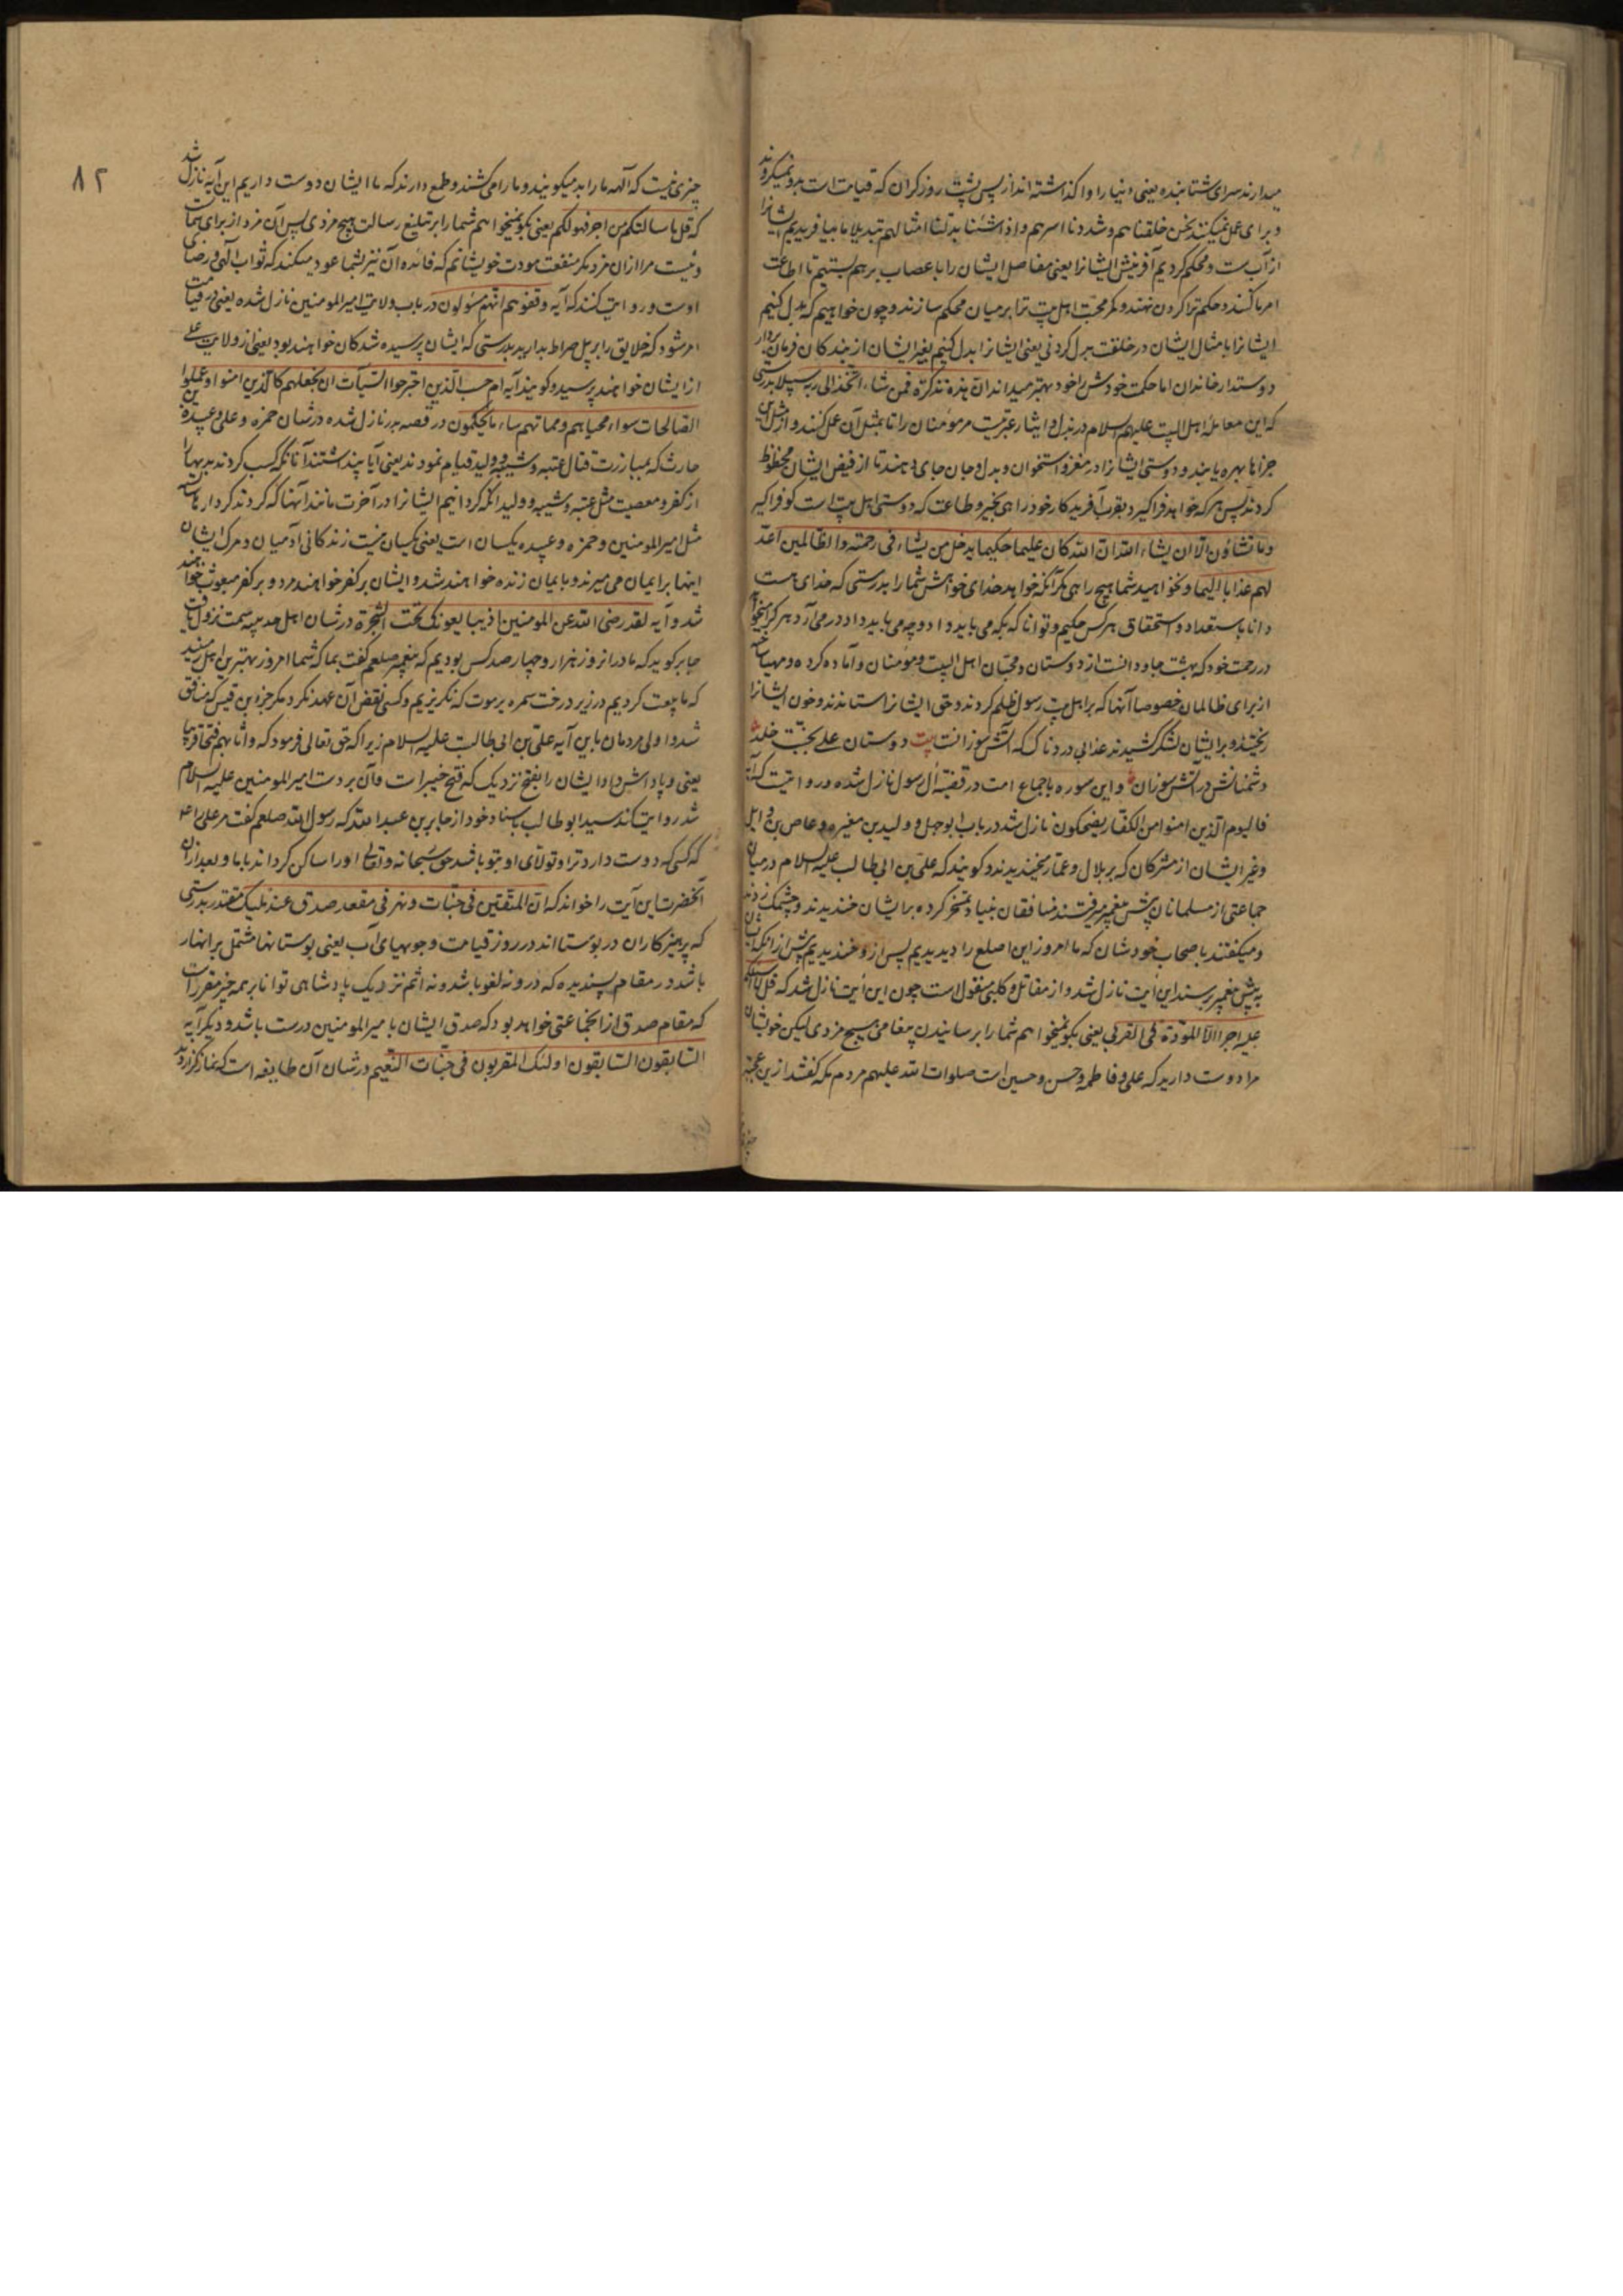 میدارند سرای شتابنده یعنی دنیا را و اکذاشته‌اند از پس پشت روز کران که قیامت است بدو نمیکروند
و برای عمل نمیکنند نحن خلقناهم و شددنا اسرهم و اذا شئنا بدلنا امثالهم تبدیلا ما بیافریدیم ایشانرا
از آب ست و محکم کردیم آفرینش ایشانرا یعنی مفاصل ایشان را با عصاب برهم بستیم تا اطاعت
امر ما کنند و حکم ترا کردن نهند و کمر محبت اهل بیت ترا بر میان محکم سازند و چون خواهیم که بدل کنیم
ایشانرا با مثال ایشان در خلقت بدل کردنی یعنی ایشانرا بدل کنیم بغیر ایشان از بندکان فرمان بردار
دوستدار خاندان اما حکمت خودش را خود بهتر میداند ان هذه تذکرة فمن شاء اتخذ الی ربه سبیلا بدرستی
که این معاملهٔ اهل البیت علیهم السلام در بذل و ایثار عبرتیت مر مومنان را تا بمثل آن عمل کنند و از مثل این
جزاها بهره یابند و دوستی ایشانرا در مغز و استخوان و بدل و جان جای دهند تا از فیض ایشان محظوظ
کردند پس هر که خواهد فراکیرد بقرب آفریدکار خود راهی بخیر و طاعت که دوستی اهل بیت است کو فراکیر
وما تشاؤن الا ان یشاء الله ان الله کان علیما حکیما یدخل من یشاء فی رحمته والظالمین اعد
لهم عذابا الیما و نخواهید شما هیچ راهی مکر آنکه خواهد خدای خواهش شما را بدرستی که خدای هست
دانا باستعداد و استحقاق هر کس حکیم و توانا که بکه می باید داد و چه می باید داد در می آرد هر کرا میخواهد
در رحمت خود که بهشت جاودانست از دوستان و محبان اهل البیت و مومنان و آماده کرده و مهیا ساخته
از برای ظالمان خصوصا آنها که بر اهل بیت رسول ظلم کردند و حق ایشانرا ستاندند و خون ایشانرا
ریختند و بر ایشان لشکر کشیدند عذابی دردناک که آتش سوزانست بیت دوستان علی بجنت خلد
دشمنانش در آتش سوزان و این سوره باجماع امت در قضیهٔ آل رسول نازل شده و روایتیت که آیه
فالیوم الذین امنوا من الکفار یضحکون نازل شد در باب ابو جهل و ولید بن مغیره و عاص بن وایل
و غیر ایشان از مشرکان که بر بلال و عمار میخندیدند و کویند که علی بن ابی طالب علیه السلام در میان
جماعتی از مسلمانان پیش پیغمبر میرفتند منافقان بنیاد تمسخر کرده بر ایشان خندیدند و چشمک زدند
و میکفتند باصحاب خودشان که ما امروز این اصلع را دیدیم پس از و خندیدیم پیش از آنکه ایشان
به پیش پیغمبر برسند این آیت نازل شد و از مقاتل و کلبی منقول است چون این آیت نازل شد که قل لا اسالکم
علیه اجرا الا المودة فی القربی یعنی بکو نمیخواهم شما را بر رسانیدن پیغام هیچ مزدی لیکن خویشان
مرا دوست دارید که علی و فاطمه و حسن و حسین است صلوات الله علیهم مردم مکه کفتند ازین عجبتر
۸۲
چیزی نیست که آلههٔ ما را بد میکویند و ما را می کشند و طمع دارند که ما ایشان دوست داریم این آیه نازل شد
که قل ما سالتکم من اجر فهو لکم یعنی بکو نمیخواهم شما را بر تبلیغ رسالت هیچ مزدی پس آن مزد از برای شماست
و نیست مرا از ان مزد مکر منفعت مودت خویشانم که فائده آن نیز بشما عود میکند که ثواب آلهی و رضای
اوست و روایت کنند که آیه وقفوهم انهم مسئولون در باب ولایت امیر المومنین نازل شده یعنی در قیامت
امر شود که خلایق را بر پل صراط بدارید بدرستی که ایشان پرسیده شدکان خواهند بود یعنی از ولایت علی
از ایشان خواهند پرسید و کویند آیه ام حسب الذین اجترحوا السیآت ان نجعلهم کالذین امنوا و عملوا
الصالحات سواء محیاهم و مماتهم ساء ما یحکمون در قصه بدر نازل شده در شان حمزه و علی و عبیده بن
حارث که بمبازرت قتال عتبه و شیبه و ولید قیام نمودند یعنی آیا پنداشتند آنانکه کسب کردند بدیها را
از کفر و معصیت مثل عتبه و شیبه و ولید آنکه کردانیم ایشانرا در آخرت مانند آنها که کردند کردارها شایسته
مثل امیر المومنین و حمزه و عبیده یکسان است یعنی یکسان نیست زندکانی آدمیان و مرک ایشان
اینها بر ایمان می میرند و با یمان زنده خواهند شد و ایشان بر کفر خواهند مرد و بر کفر مبعوث خواهند
شد و آیه لقد رضی الله عن المومنین اذ یبایعونک تحت الشجرة در شان اهل حدیبیه سمت نزول یافت
جابر کوید که ما در انروز هزار و چهار صد کس بودیم که پیغمبر صلعم کفت بما که شما امروز بهترین اهل زمینید
که ما بیعت کردیم در زیر درخت سمره بر موت که نکریزیم و کسی نقض آن عهد نکرد مکر جز ابن قیس که منافق
شد و اولی مردمان باین آیه علی بن ابی طالب علیه السلام زیرا که حق تعالی فرمود که و اثابهم فتحا قریبا
یعنی و پاداش داد ایشان را بفتح نزدیک که فتح خیبر است و آن بر دست امیر المومنین علیه السلام
شد روایت کند سید ابو طالب باسناد خود از جابر بن عبد الله که رسول الله صلعم کفت مر علی را
که کسی که دوست دارد ترا و تولای او بتو باشد حق سبحانه و تعالی او را ساکن کرداند با ما و بعد از ان
آنحضرت این آیت را خواند که ان المتقین فی جنات و نهر فی مقعد صدق عند ملیک مقتدر بدرستی
که پرهیزکاران در بوستانند در روز قیامت و جویهای آب یعنی بوستانها مشتمل بر انهار
باشد در مقام پسندیده که درو نه لغو باشد و نه اثم نزدیک پادشاهی توانا بر همه چیز مقررست
که مقام صدق از انجماعتی خواهد بود که صدق ایشان با میر المومنین درست باشد و دیکر آیه
السابقون السابقون اولئک المقربون فی جنات النعیم در شان آن طایفه است که نماز کزاردند